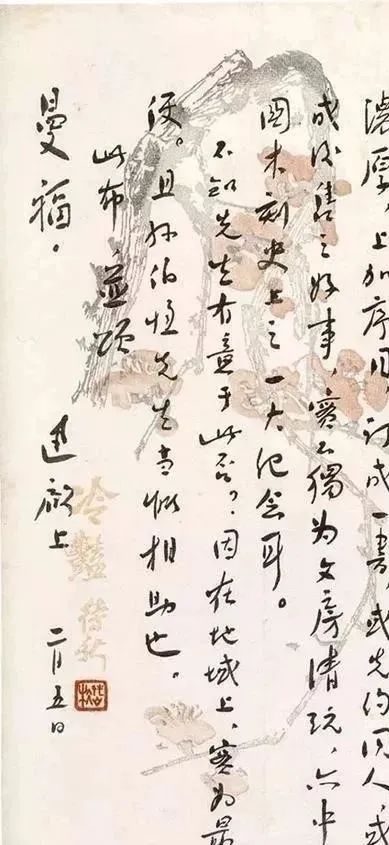 濃厚，上加序目，订成一書，或先约同人，或
成后售之好事，實不獨为文房清玩，亦中
國木刻史上之一大纪念耳。
不知先生有意于此否？因在地域上，實为最
便。且孙伯恒先生当能相助也。
此布，並頌
曼福。
迅啟上 二月五日
冷豔 待秋